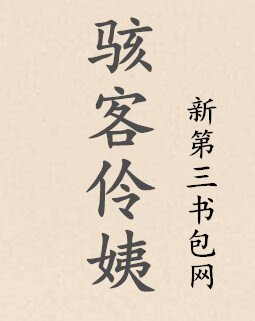 骇客伶姨
新第三书包网